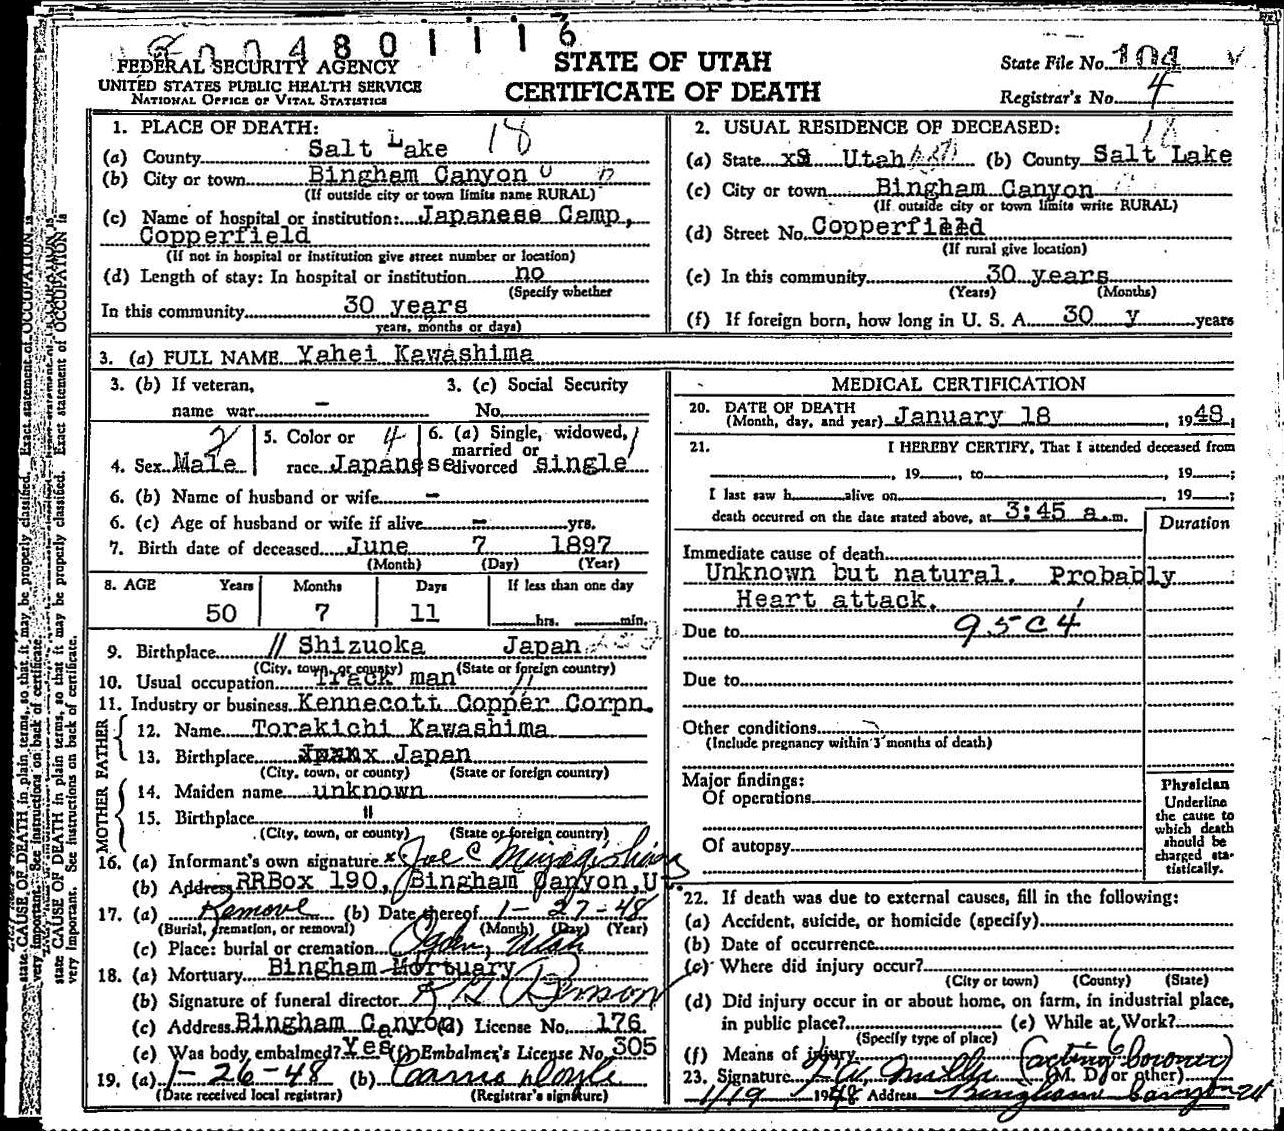 2004801116
FEDERAL SECURITY AGENCY
UNITED STATES PUBLIC HEALTH SERVICE
NATIONAL OFFICE OF VITAL STATISTICS
STATE OF UTAH
CERTIFICATE OF DEATH
State File No. 104
Registrar's No. 4
1. PLACE OF DEATH:
(a) County Salt Lake 18
(b) City or town Bingham Canyon
(If outside city or town limits name RURAL)
(c) Name of hospital or institution: Japanese Camp,
Copperfield
(If not in hospital or institution give street number or location)
(d) Length of stay: In hospital or institution no
(Specify whether
In this community 30 years
years, months or days)
2. USUAL RESIDENCE OF DECEASED: 18
(a) State Utah (b) County Salt Lake
(c) City or town Bingham Canyon
(If outside city or town limits write RURAL)
(d) Street No. Copperfield
(If rural give location)
(e) In this community 30 years
(Years) (Months)
(f) If foreign born, how long in U. S. A. 30 y years
3. (a) FULL NAME Yahei Kawashima
3. (b) If veteran, name war –
3. (c) Social Security No.
4. Sex Male 2
5. Color or race Japanese 4
6. (a) Single, widowed, married or divorced single 1
6. (b) Name of husband or wife –
6. (c) Age of husband or wife if alive – yrs.
7. Birth date of deceased June 7 1897
(Month) (Day) (Year)
8. AGE Years Months Days If less than one day
50 7 11 hrs. min.
9. Birthplace // Shizuoka Japan
(City, town, or county) (State or foreign country)
10. Usual occupation Track man
11. Industry or business Kennecott Copper Corpn.
FATHER
12. Name Torakichi Kawashima
13. Birthplace Japan
(City, town, or county) (State or foreign country)
MOTHER
14. Maiden name unknown
15. Birthplace "
(City, town, or county) (State or foreign country)
16. (a) Informant's own signature x Joe C Miyagishima
(b) Address RRBox 190, Bingham Canyon, U
17. (a) Remove (b) Date thereof 1-27-48
(Burial, cremation, or removal) (Month) (Day) (Year)
(c) Place: burial or cremation Ogden, Utah
18. (a) Mortuary Bingham Mortuary
(b) Signature of funeral director
(c) Address Bingham Canyon (d) License No. 176
(e) Was body embalmed? Yes (f) Embalmer's License No. 305
19. (a) 1-26-48 (b)
(Date received local registrar) (Registrar's signature)
MEDICAL CERTIFICATION
20. DATE OF DEATH
(Month, day, and year) January 18, 1948;
21. I HEREBY CERTIFY, That I attended deceased from
, 19 , to , 19 ;
I last saw h alive on , 19 ;
death occurred on the date stated above, at 3:45 a.m.
Duration
Immediate cause of death
Unknown but natural. Probably
Heart attack.
Due to 95c4
Due to
Other conditions
(Include pregnancy within 3 months of death)
Major findings:
Of operations
Of autopsy
Physician
Underline
the cause to
which death
should be
charged sta-
tistically.
22. If death was due to external causes, fill in the following:
(a) Accident, suicide, or homicide (specify)
(b) Date of occurrence
(c) Where did injury occur?
(City or town) (County) (State)
(d) Did injury occur in or about home, on farm, in industrial place,
in public place? (e) While at Work?
(Specify type of place)
(f) Means of injury (acting Coroner)
23. Signature (M. D. or other)
1/19 1948 Address Bingham Canyon
state CAUSE OF DEATH in plain terms, so that it may be properly classified. Exact statement of OCCUPATION is
very important. See instructions on back of certificate.